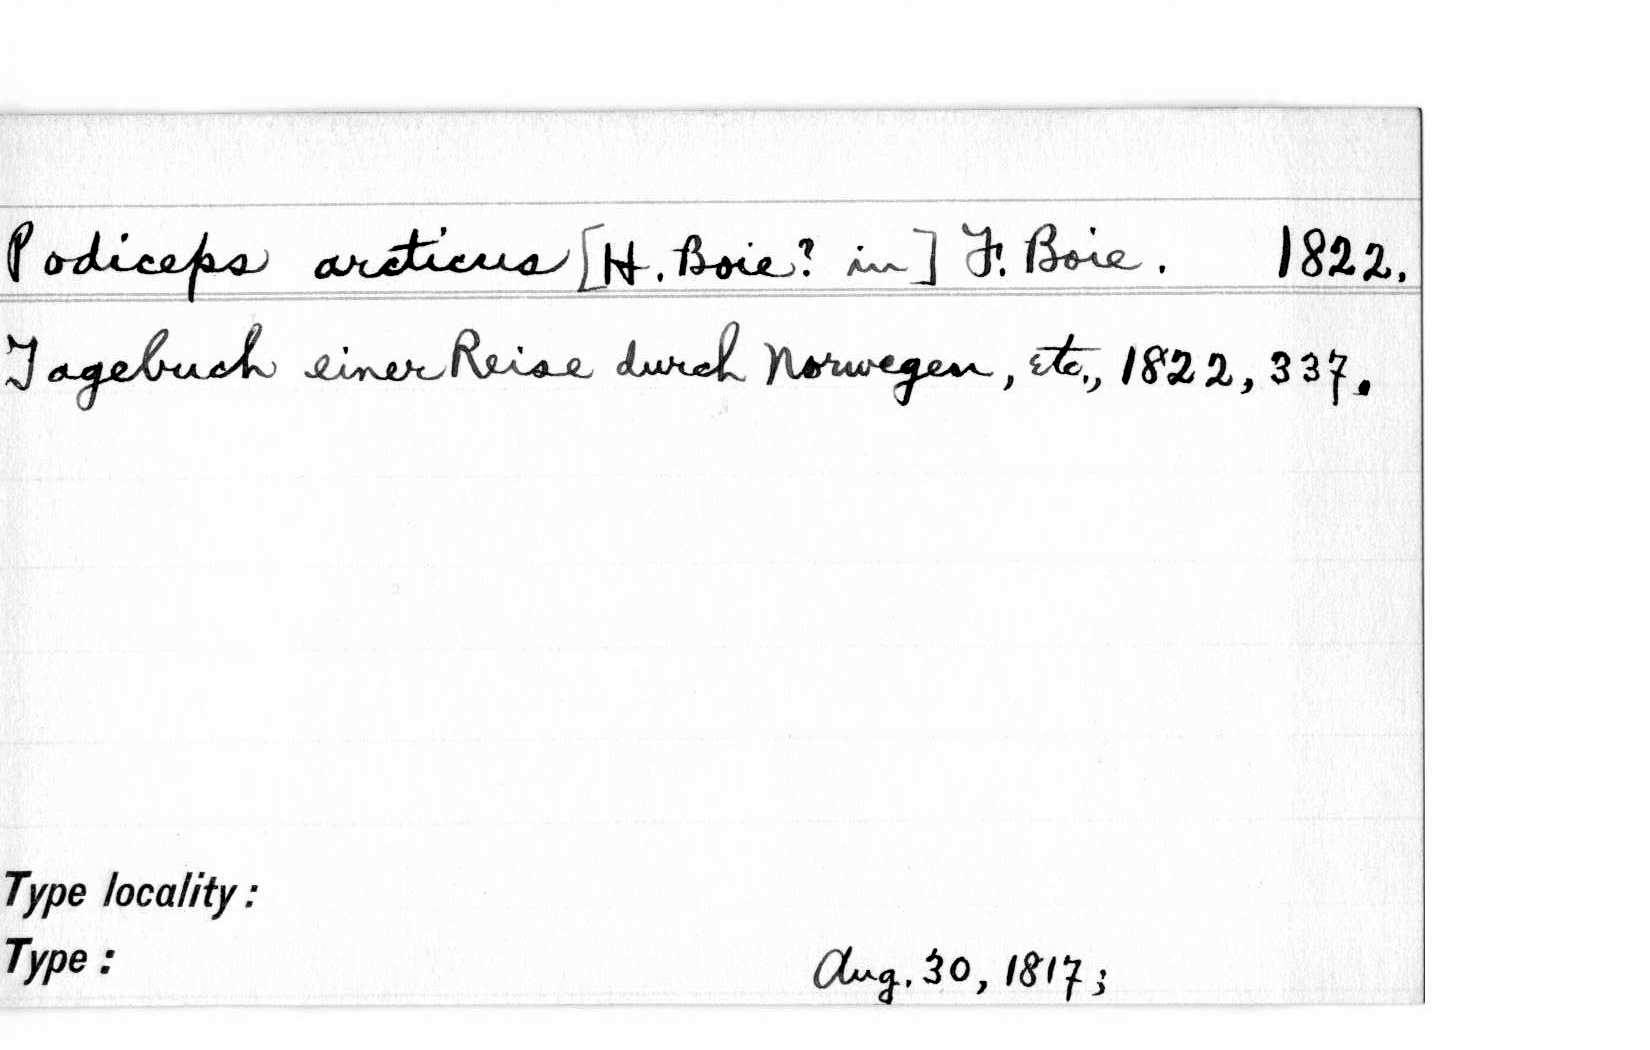 Podiceps arcticus [H. Boie? in] F. Boie. 1822.
Tagebuch einer Reise durch Norwegen, etc., 1822, 337.
Type locality:
Type: Aug. 30, 1817;